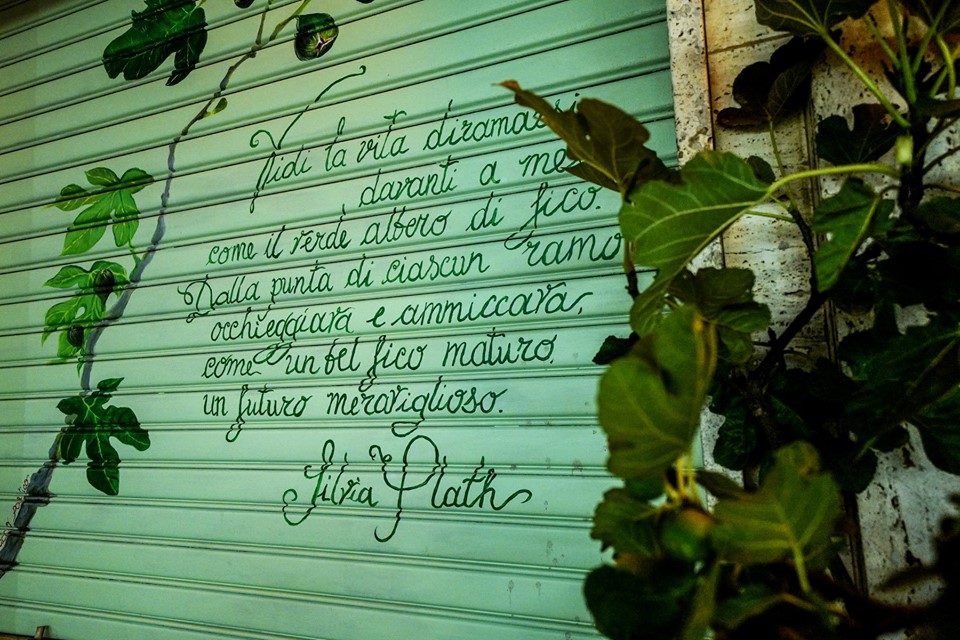 Vidi la vita diramarsi
davanti a me
come il verde albero di fico.
Dalla punta di ciascun ramo
occhieggiara e ammiccara,
come un bel fico maturo,
un futuro meraviglioso.
Silvia Plath